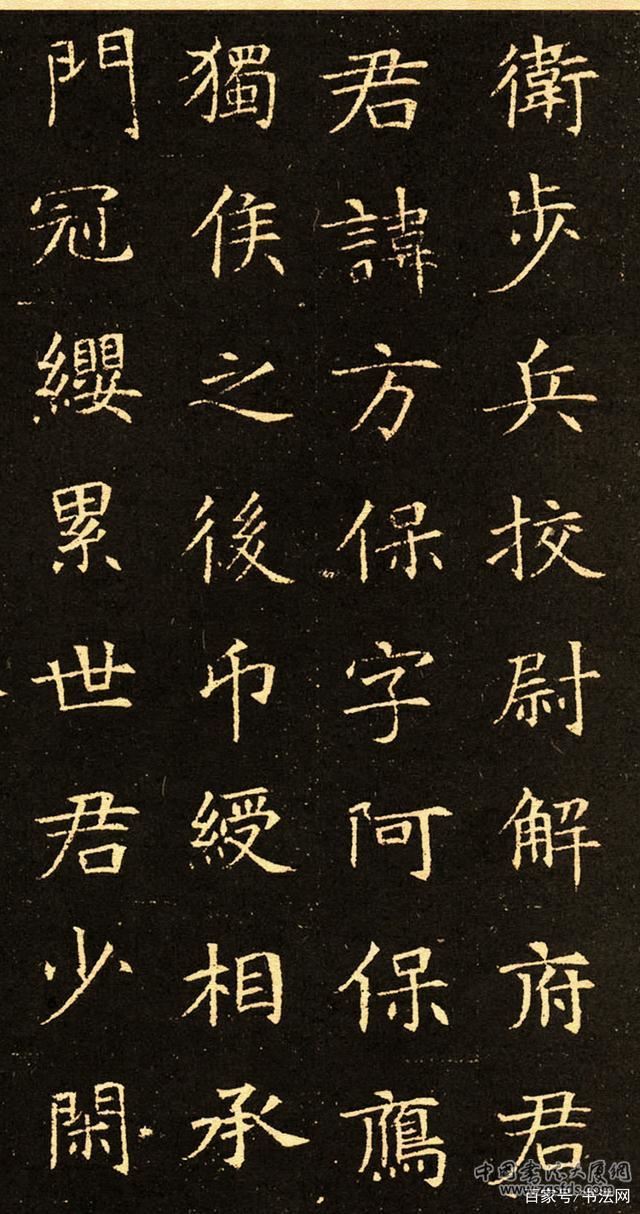 衛歩兵挍尉解府君
君諱方保字阿保鴈
獨侯之後印綬相承
門冠纓累世君少閑
百家号/书法网